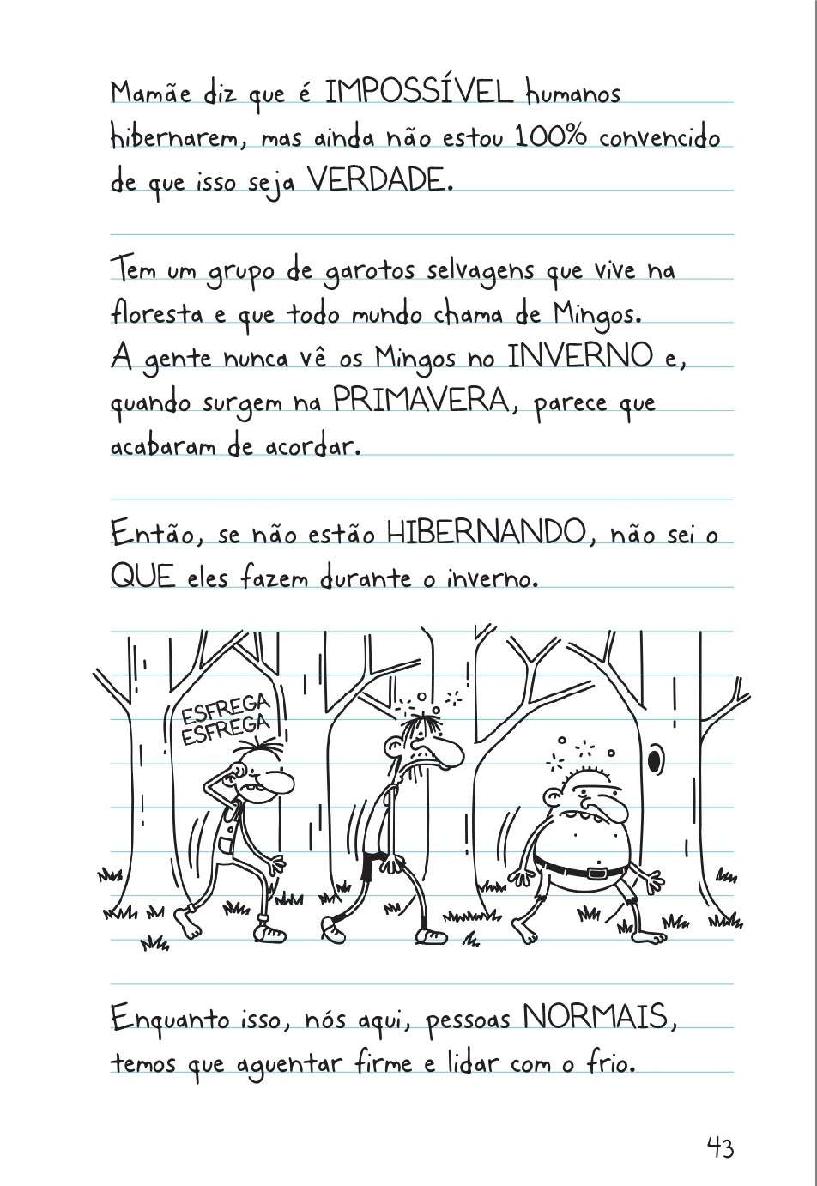 Mamãe diz que é IMPOSSÍVEL humanos
hibernarem, mas ainda não estou 100% convencido
de que isso seja VERDADE.
Tem um grupo de garotos selvagens que vive na
floresta e que todo mundo chama de Mingos.
A gente nunca vê os Mingos no INVERNO e,
quando surgem na PRIMAVERA, parece que
acabaram de acordar.
Então, se não estão HIBERNANDO, não sei o
QUE eles fazem durante o inverno.
ESFREGA
ESFREGA
Enquanto isso, nós aqui, pessoas NORMAIS,
temos que aguentar firme e lidar com o frio.
43